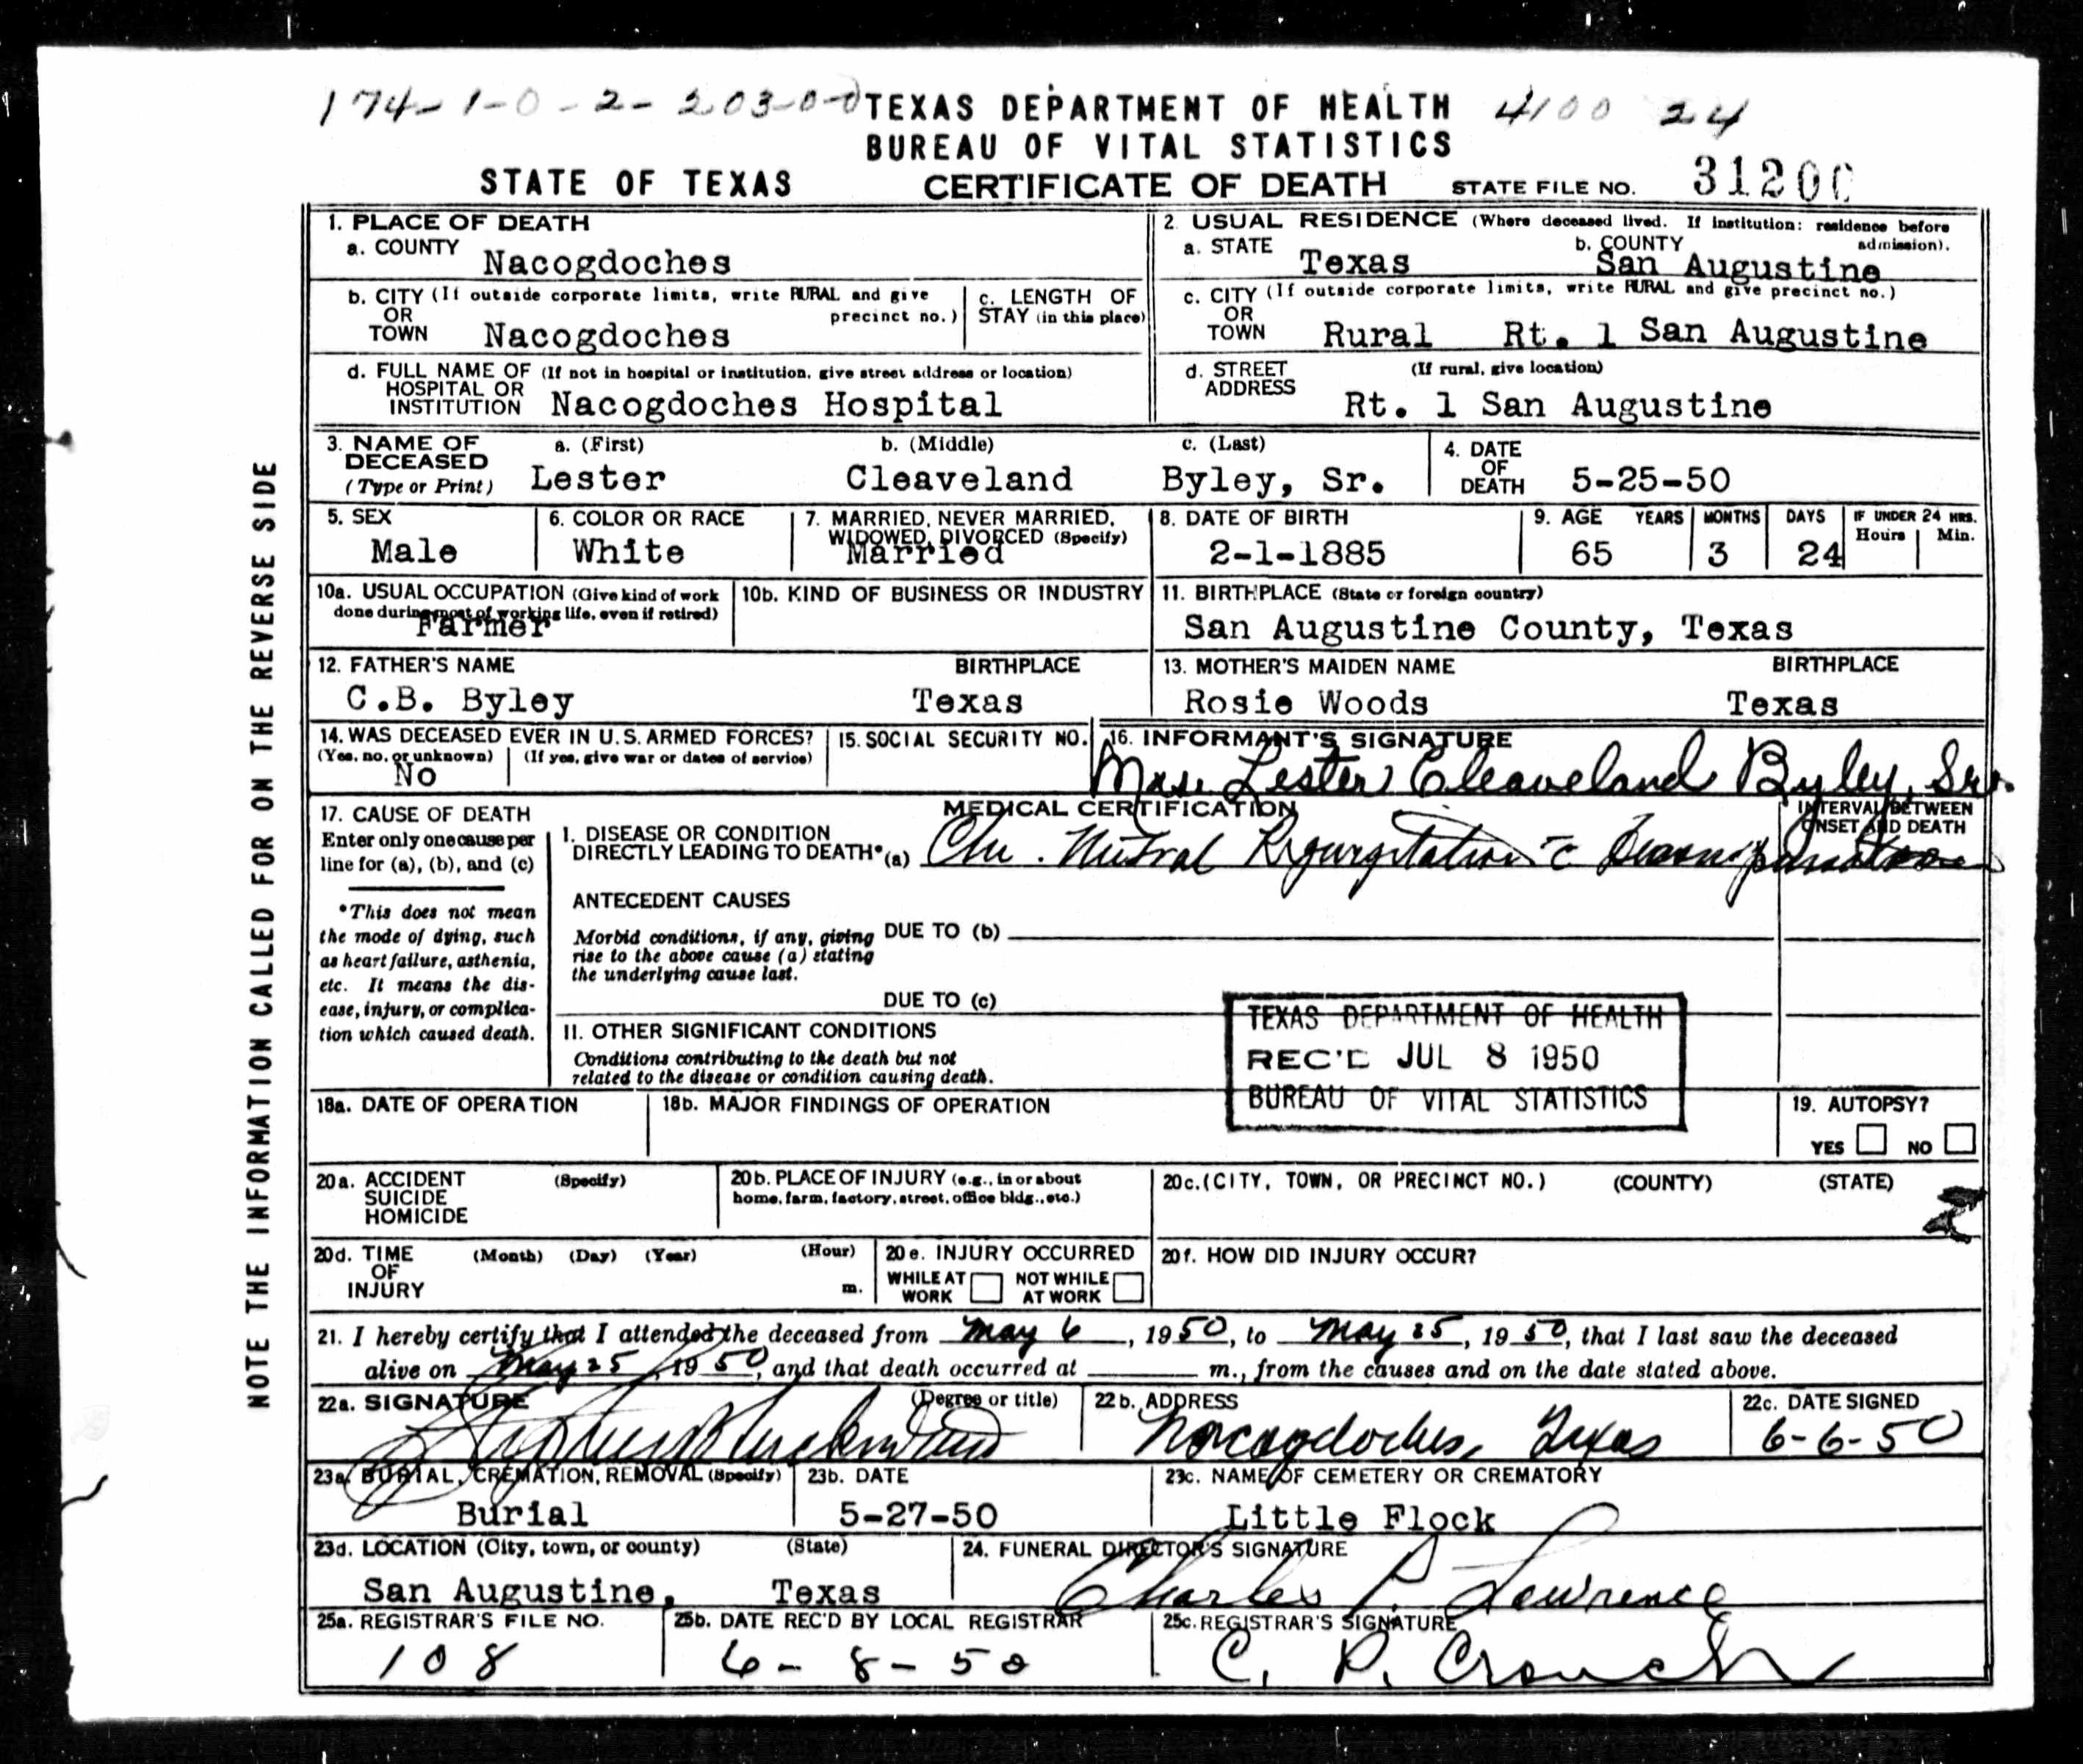 174-1-0-2-203-0-0 TEXAS DEPARTMENT OF HEALTH 4100 24
BUREAU OF VITAL STATISTICS
STATE OF TEXAS CERTIFICATE OF DEATH STATE FILE NO. 31200
NOTE THE INFORMATION CALLED FOR ON THE REVERSE SIDE
1. PLACE OF DEATH
a. COUNTY Nacogdoches
2. USUAL RESIDENCE (Where deceased lived. If institution: residence before admission).
a. STATE Texas b. COUNTY San Augustine
b. CITY (If outside corporate limits, write RURAL and give precinct no.)
OR
TOWN Nacogdoches
c. LENGTH OF
STAY (in this place)
c. CITY (If outside corporate limits, write RURAL and give precinct no.)
OR
TOWN Rural Rt. 1 San Augustine
d. FULL NAME OF (If not in hospital or institution, give street address or location)
HOSPITAL OR
INSTITUTION Nacogdoches Hospital
d. STREET (If rural, give location)
ADDRESS
Rt. 1 San Augustine
3. NAME OF a. (First) b. (Middle) c. (Last)
DECEASED
(Type or Print) Lester Cleaveland Byley, Sr.
4. DATE
OF
DEATH 5-25-50
5. SEX
Male
6. COLOR OR RACE
White
7. MARRIED, NEVER MARRIED,
WIDOWED, DIVORCED (Specify)
Married
8. DATE OF BIRTH
2-1-1885
9. AGE YEARS MONTHS DAYS IF UNDER 24 HRS.
Hours Min.
65 3 24
10a. USUAL OCCUPATION (Give kind of work
done during most of working life, even if retired)
Farmer
10b. KIND OF BUSINESS OR INDUSTRY
11. BIRTHPLACE (State or foreign country)
San Augustine County, Texas
12. FATHER'S NAME BIRTHPLACE
C.B. Byley Texas
13. MOTHER'S MAIDEN NAME BIRTHPLACE
Rosie Woods Texas
14. WAS DECEASED EVER IN U.S. ARMED FORCES?
(Yes, no, or unknown) (If yes, give war or dates of service)
No
15. SOCIAL SECURITY NO.
16. INFORMANT'S SIGNATURE
Mrs. Lester Cleaveland Byley, Sr.
17. CAUSE OF DEATH
Enter only one cause per
line for (a), (b), and (c)
*This does not mean
the mode of dying, such
as heart failure, asthenia,
etc. It means the dis-
ease, injury, or complica-
tion which caused death.
MEDICAL CERTIFICATION
INTERVAL BETWEEN
ONSET AND DEATH
I. DISEASE OR CONDITION
DIRECTLY LEADING TO DEATH* (a) Chr. Mitral Regurgitation c̄ Decompensation
ANTECEDENT CAUSES
Morbid conditions, if any, giving
rise to the above cause (a) stating
the underlying cause last.
DUE TO (b)
DUE TO (c)
II. OTHER SIGNIFICANT CONDITIONS
Conditions contributing to the death but not
related to the disease or condition causing death.
TEXAS DEPARTMENT OF HEALTH
REC'D JUL 8 1950
BUREAU OF VITAL STATISTICS
18a. DATE OF OPERATION
18b. MAJOR FINDINGS OF OPERATION
19. AUTOPSY?
YES NO
20a. ACCIDENT (Specify)
SUICIDE
HOMICIDE
20b. PLACE OF INJURY (e.g., in or about
home, farm, factory, street, office bldg., etc.)
20c. (CITY, TOWN, OR PRECINCT NO.) (COUNTY) (STATE)
20d. TIME (Month) (Day) (Year) (Hour)
OF
INJURY m.
20e. INJURY OCCURRED
WHILE AT WORK NOT WHILE AT WORK
20f. HOW DID INJURY OCCUR?
21. I hereby certify that I attended the deceased from May 6, 1950, to May 25, 1950, that I last saw the deceased
alive on May 25, 1950, and that death occurred at m., from the causes and on the date stated above.
22a. SIGNATURE (Degree or title)
22b. ADDRESS
Nacogdoches, Texas
22c. DATE SIGNED
6-6-50
23a. BURIAL, CREMATION, REMOVAL (Specify)
Burial
23b. DATE
5-27-50
23c. NAME OF CEMETERY OR CREMATORY
Little Flock
23d. LOCATION (City, town, or county) (State)
San Augustine, Texas
24. FUNERAL DIRECTOR'S SIGNATURE
Charles P. Lawrence
25a. REGISTRAR'S FILE NO.
108
25b. DATE REC'D BY LOCAL REGISTRAR
6-8-50
25c. REGISTRAR'S SIGNATURE
C. P. Crouch